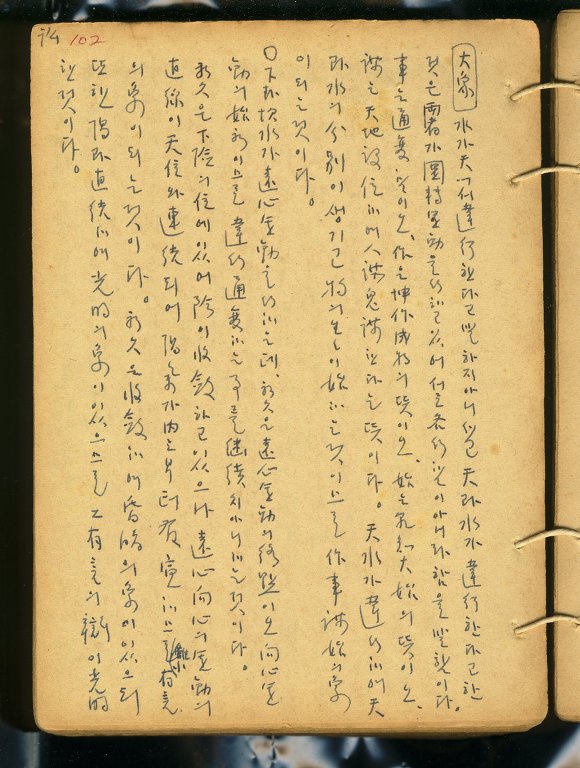 102
大象 水가 天에서 違行한다고 말하지 아니하고 天과 水가 違行한다고 한
것은 兩者가 圓轉運動을 行하고 있어 서로 各行함이 아니라 함을 말함이다.
事는 通變의 뜻이오, 作은 坤作成物의 뜻이오, 始는 乾知大始의 뜻이오,
謀는 天地設位하매 人謀鬼謀한다는 뜻이다. 天水가 違行하매 天
과 水의 分別이 생기고 物의 生함이 始하는 것이므로 作事謀始의 象
이 되는 것이다.
○下卦坎水가 遠心運動을 行하는데, 初六은 遠心運動의 終點이오 向心運
動의 始初이므로 違行通變하는 事를 繼續치 아니하는 것이다.
初六은 下險의 位에 있어 陰이 收斂하고 있으나 遠心向心의 運動의
直線이 天位와 連續되어 陽氣가 內로부터 發宣하므로 雖小有言
의 象이 되는 것이다. 初六은 收斂하매 昏晦의 象이 있으되
또한 陽과 直結하매 光明의 象이 있으므로 그 有言의 辯이 光明
한 것이다.